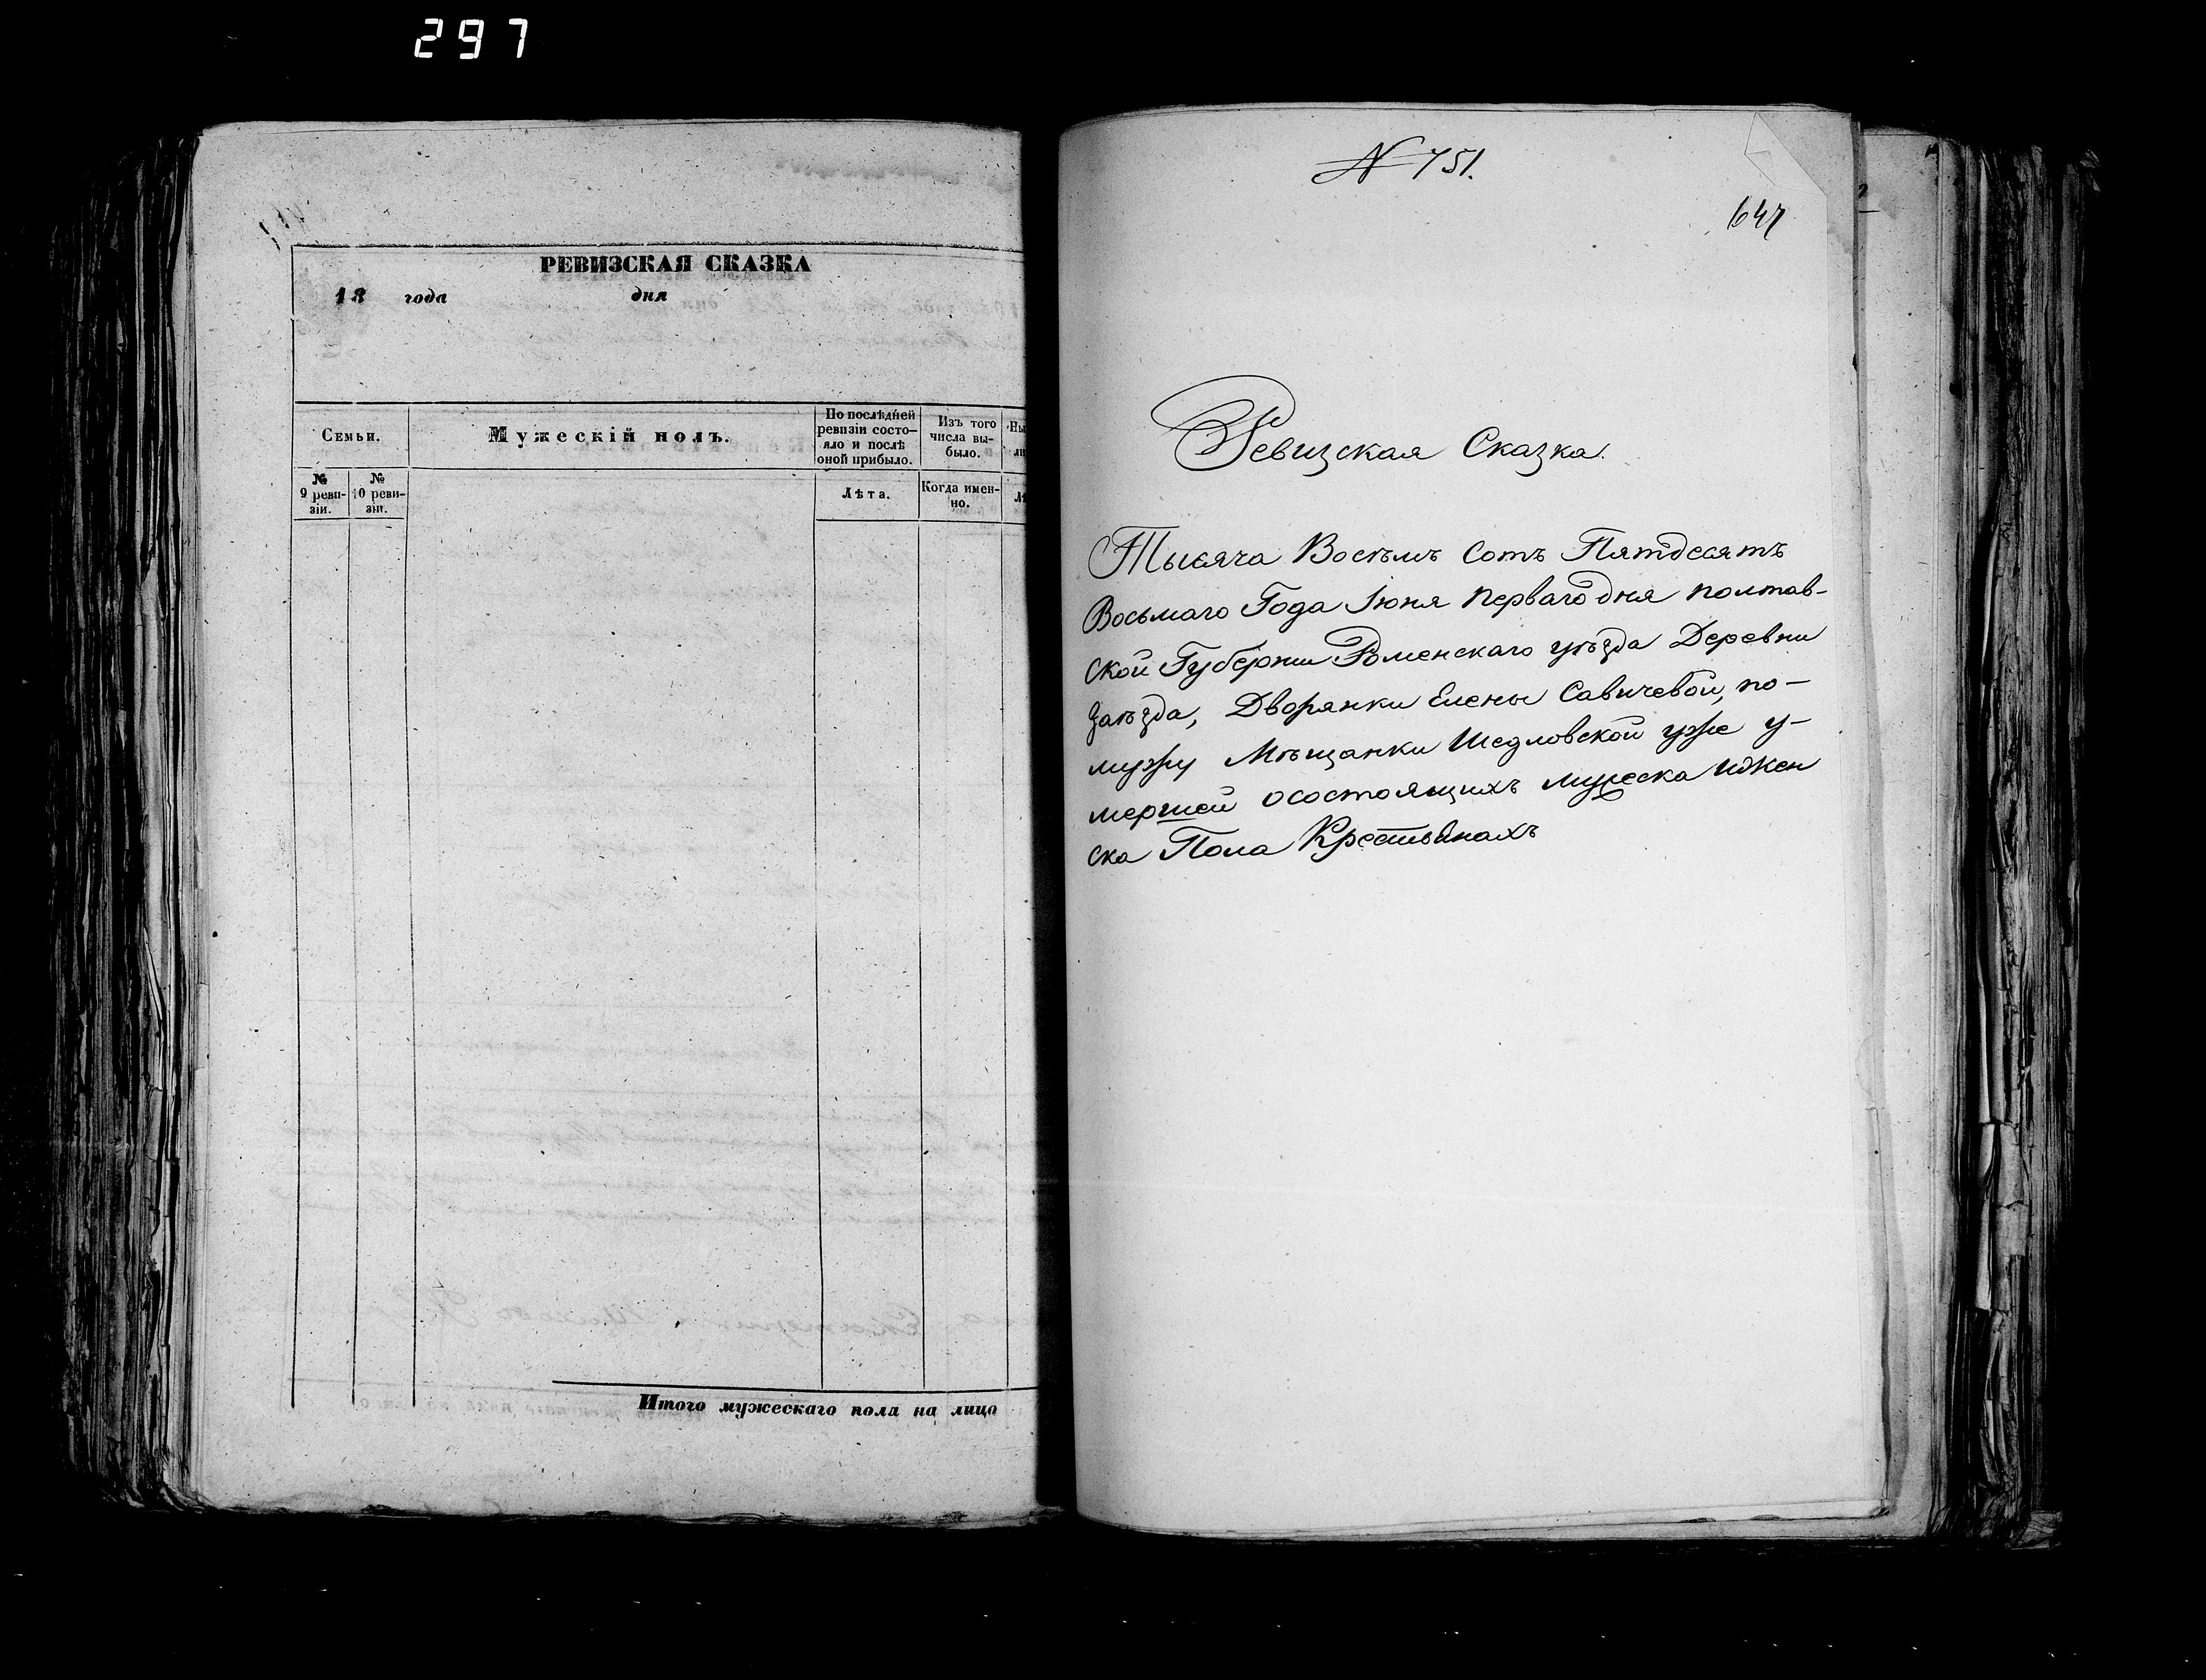 297
РЕВИЗСКАЯ СКАЗКА
18 года дня
Семьи.
Мужескій полъ.
По послѣдней ревизіи состо-
яло и послѣ
оной прибыло.
Изъ того
числа вы-
было.
№
9 реви-
зіи.
№
10 реви-
зіи.
Лѣта.
Когда имен-
но.
Итого мужескаго пола на лицо
N 751.
647
Ревизская Сказка.
Тысяча Восѣмъ Сотъ Пятдесятъ
Восьмаго Года Іюня перваго дня полтав-
ской Губерніи Роменскаго уѣзда Деревни
Заѣзда, Дворянки Елены Савичевой, по-
мужу Мѣщанки Шедловской уже у-
мершей осостоящихъ мужеска ижен
ска Пола Крестьянахъ